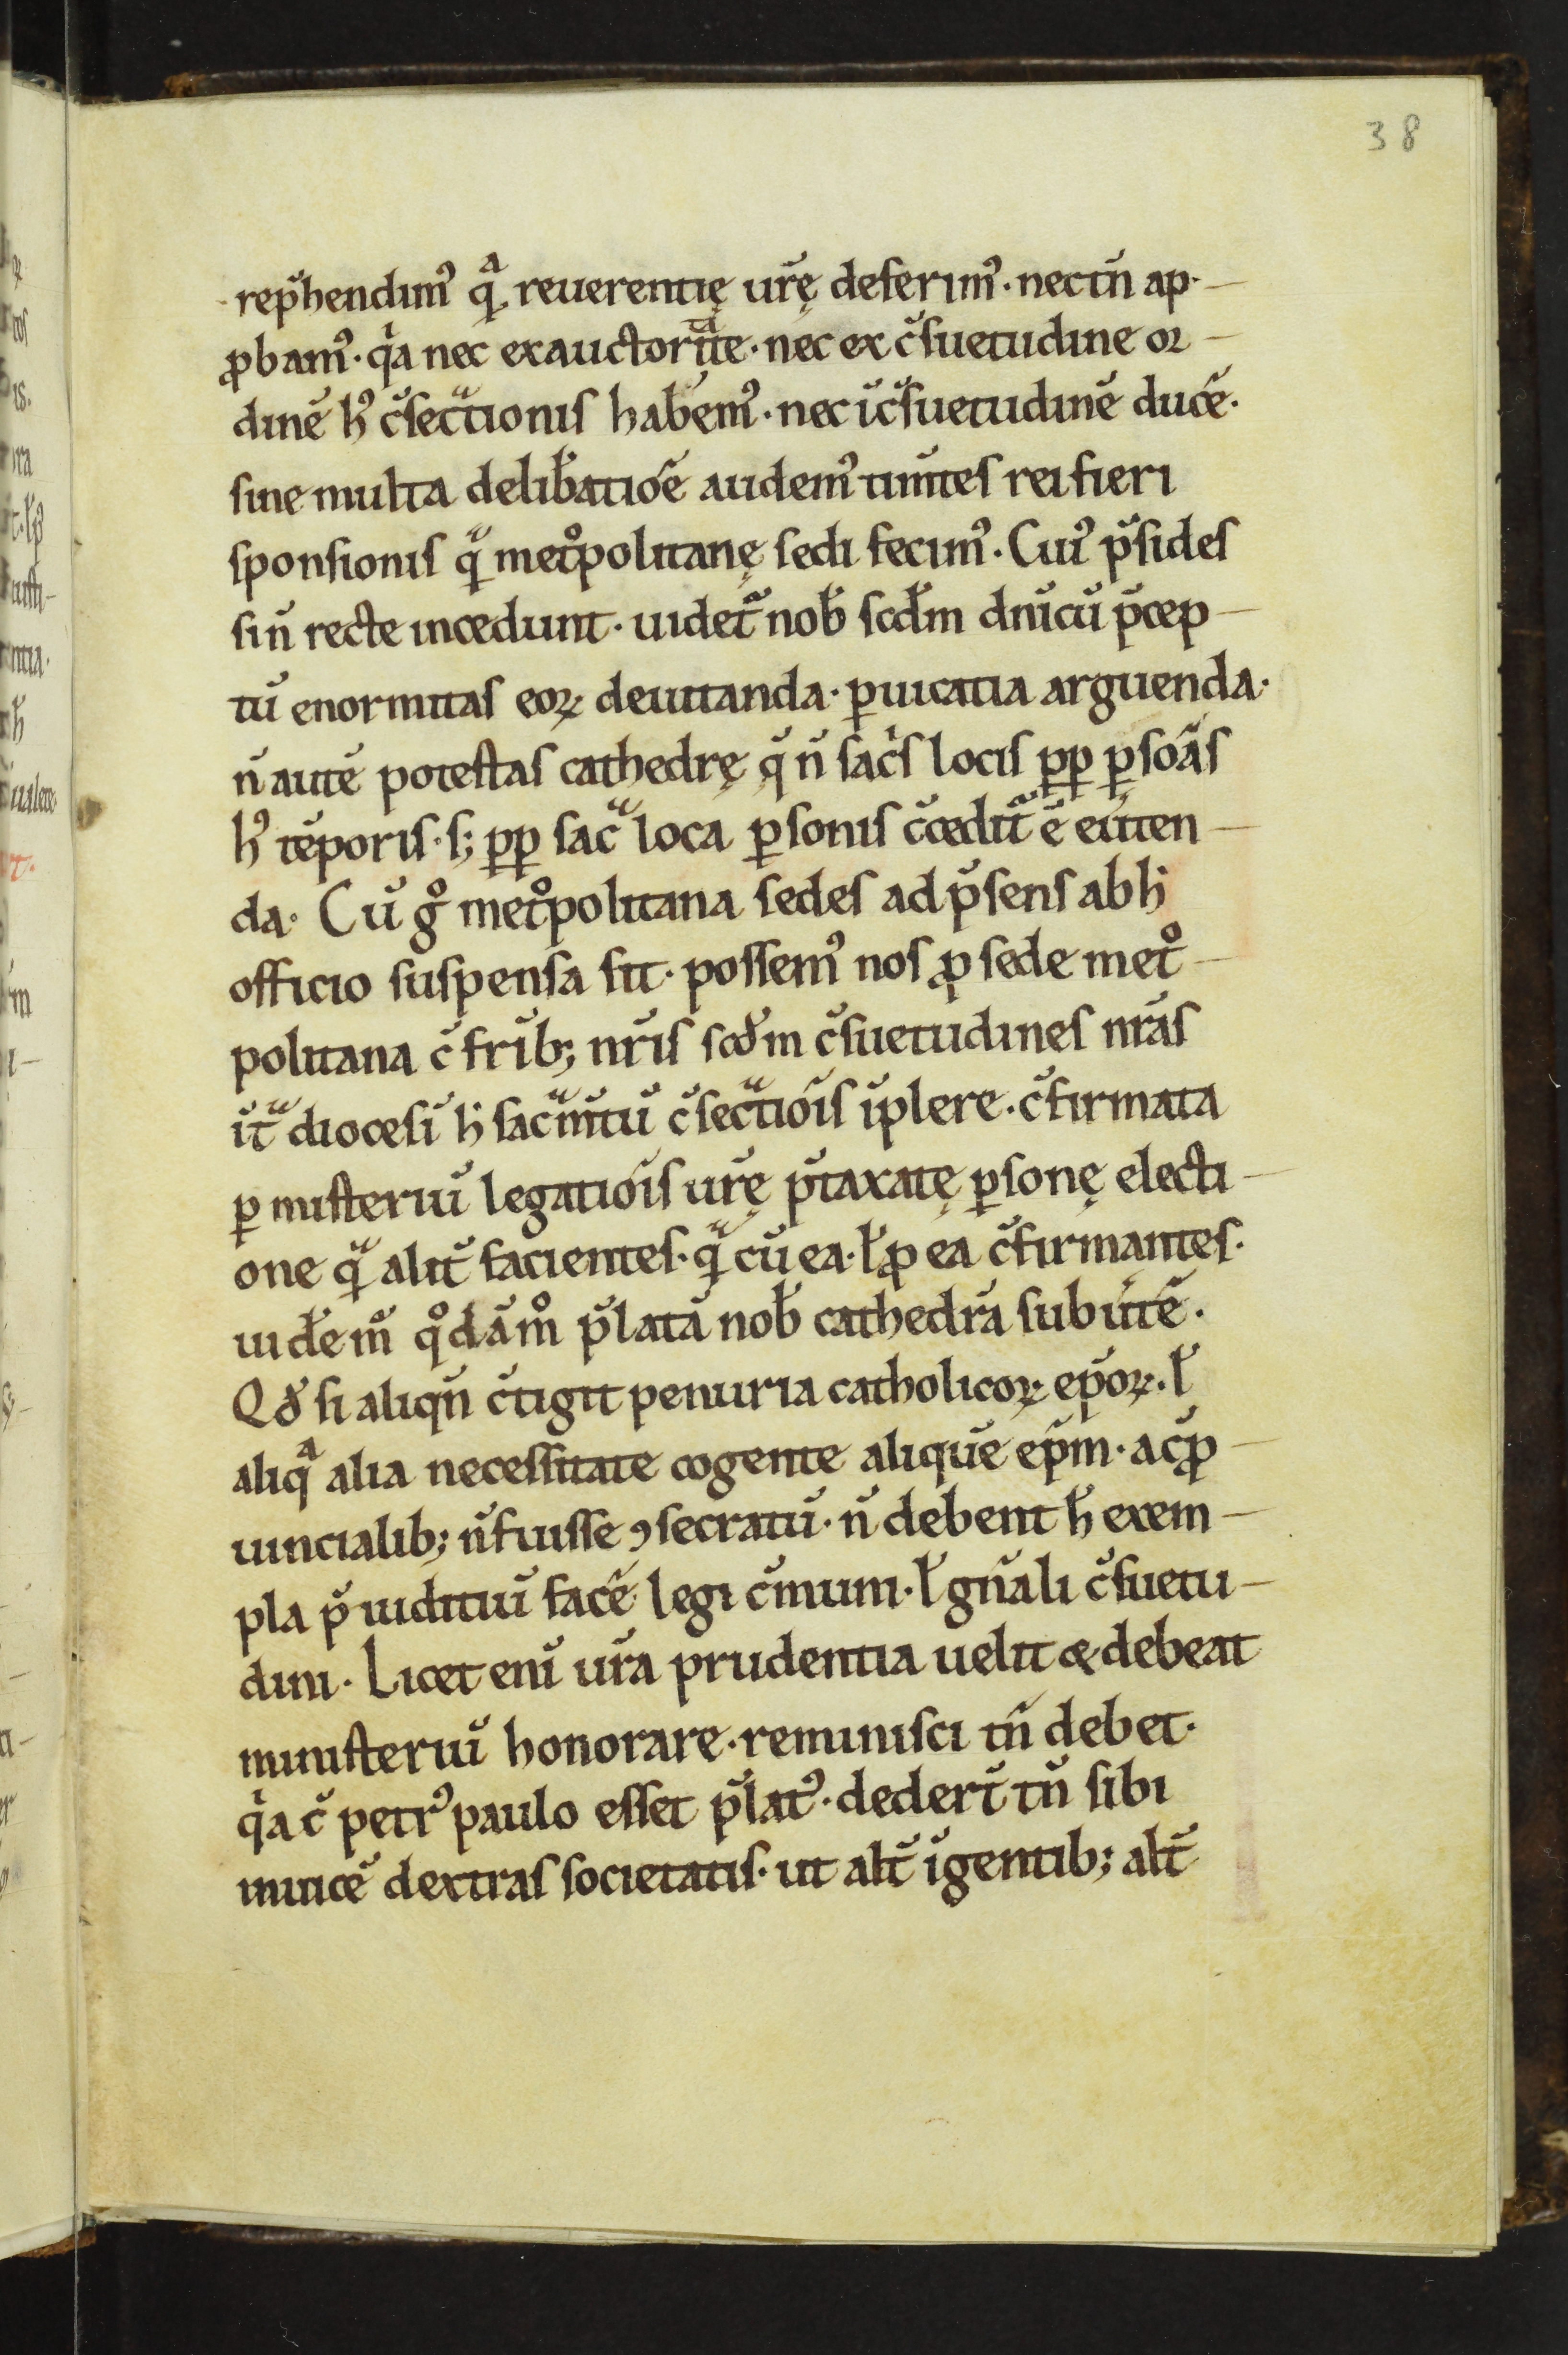 38
rep̄hendimꝰ qᵃ reuerentię ur̄ę deferimꝰ · nec tn̄ ap-
ꝓbamꝰ · qⁱa nec ex auctoritᵃte · nec ex c̄suetudine or-
dinē hꝰ c̄secᵃtionis habemꝰ · nec ī c̄suetudinē ducē·
sine multa delib̄atiōe audemꝰ tim̄tes rei fieri
sponsionis qᵃ metᵒpolitanę sedi fecimꝰ · Cuiꝰ p̄sides
si n̄ recte incedunt · uidetᵃ nob̄ scd̄m dn̄icū p̄cep-
tū enormitas eoꝝ deuitanda · ꝑuicatia arguenda·
n̄ autē potestas cathedrę q̄ n̄ sacⁱs locis ꝓꝑ ꝑsoās
hꝰ tēporis · s; ꝓꝑ sacᵃ loca ꝑsonis c̄cedit̄ ē euiten-
da · Cū gᵒ metᵒpolitana sedes ad p̄sens ab h̄
officio suspensa sit · possemꝰ nos ꝓ sede metᵒ-
politana c̄ frīb; nr̄is scd̄m c̄suetudines nr̄as
īt̄ᵃ diocesī h̄ sacᵃm̄tū c̄secᵃtiōis īplere · c̄firmata
ꝑ misteriū legatiōis ur̄ę p̄taxatę ꝑsonę electi-
one qᵃ alit̄ facientes · qᵃ cū ea · l̄ ꝓ ea c̄firmantes·
uidem̄ qᵒdāmᵒ p̄latā nob̄ cathedrā subūtē·
Qd̄ si aliqn̄ c̄tigit penuria catholicoꝝ ep̄oꝝ · l̄
aliqᵃ alia necessitate cogente aliquē ep̄m · a cꝓ-
uincialib; n̄ fuisse ꝯsecratū · n̄ debent h̄ exem-
pla p̄iuditiū facē legi c̄muni · l̄ gn̄ali c̄suetu-
dini · Licet enī ur̄a prudentia uelit & debeat
ministeriū honorare · reminisci tn̄ debet·
qⁱa c̄ petrꝰ paulo esset p̄latꝰ · dedert̄ tn̄ sibi
inuicē dextras societatis · ut alt̄ ī gentib; alt̄